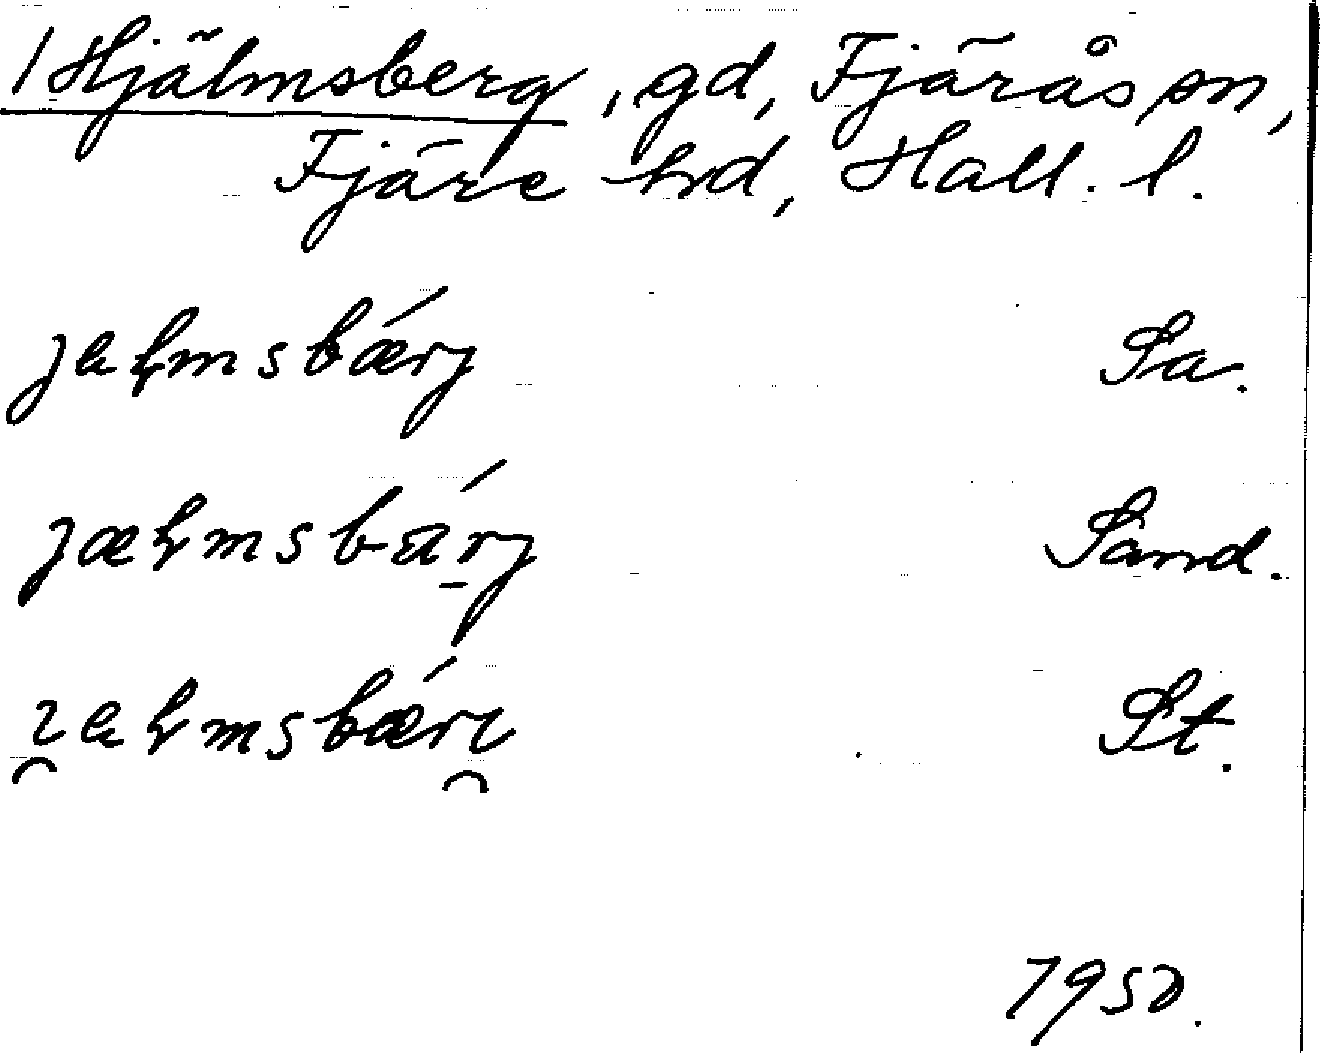 1 Hjälmsberg, gd, Fjärås sn,
Fjäre hd, Hall. l.
jaɬmsbǽrj Sa.
jæɬmsbá̱rj Sand.
ı̯aɬmsbǽrı̯ St.
1950.